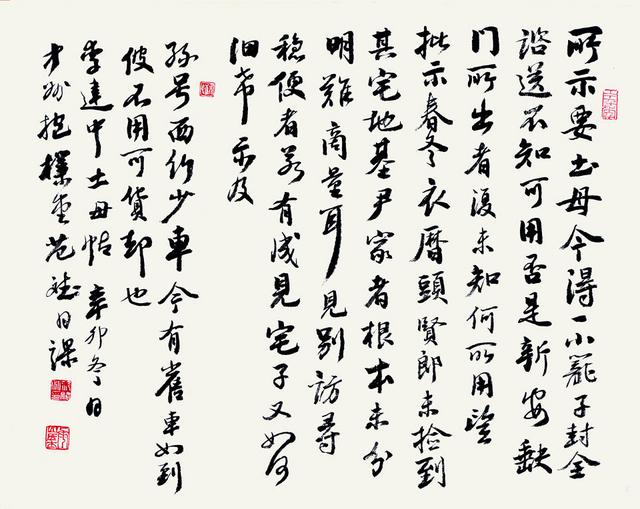 所示要土母今得一小籠子封全
諮送不知可用否是新安缺
門所出者復未知何所用望
批示春冬衣曆頭賢郎未撿到
其宅地基尹家者根本未分
明難商量耳見別訪尋
穩便者若有成見宅子又如何
細希示及
孫号西行少車今有舊車如到
彼不用可貨却也
李建中土母帖 辛卯冬日
抱樸堂 范 日課